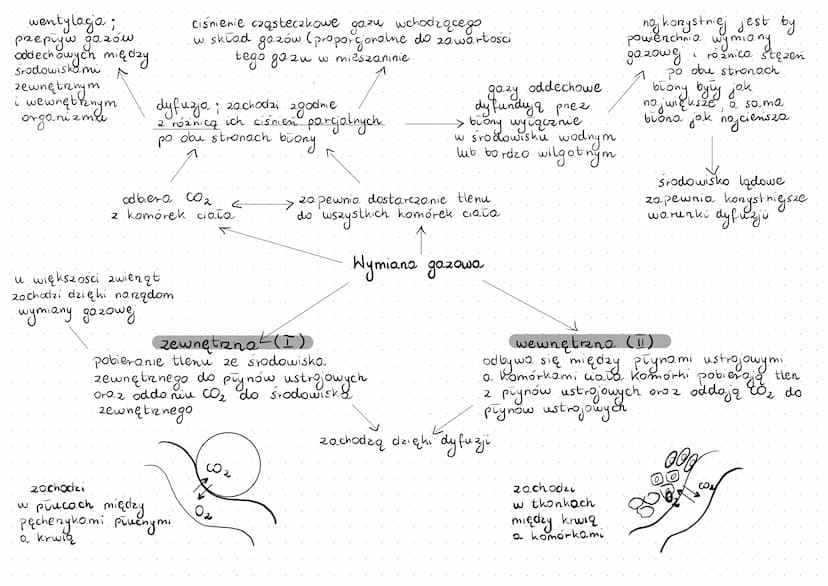 wentylacja;
przepływ gazów
oddechowych między
środowiskami
zewnętrznym
i wewnętrznym
organizmu
ciśnienie cząsteczkowe gazu wchodzącego
w skład gazów (proporcjonalne do zawartości
tego gazu w mieszaninie
najkorzystniej jest by
powierzchnia wymiany
gazowej i różnica stężeń
po obu stronach
błony były jak
największe, a sama
błona jak najcieńsza
dyfuzja; zachodzi zgodnie
z różnicą ich ciśnień parcjalnych
po obu stronach błony
gazy oddechowe
dyfundują przez
błony wyłącznie
w środowisku wodnym
lub bardzo wilgotnym
środowisko lądowe
zapewnia korzystniejsze
warunki dyfuzji
odbiera CO2
z komórek ciała
zapewnia dostarczanie tlenu
do wszystkich komórek ciała
Wymiana gazowa
u większości zwierząt
zachodzi dzięki narządom
wymiany gazowej
zewnętrzna (I)
pobieranie tlenu ze środowiska
zewnętrznego do płynów ustrojowych
oraz oddaniu CO2 do środowiska
zewnętrznego
wewnętrzna (II)
odbywa się między płynami ustrojowymi
a komórkami ciała. Komórki pobierają tlen
z płynów ustrojowych oraz oddają CO2 do
płynów ustrojowych
zachodzą dzięki dyfuzji
zachodzi
w płucach między
pęcherzykami płucnymi
a krwią
CO2
O2
zachodzi
w tkankach
między krwią
a komórkami
O2
CO2